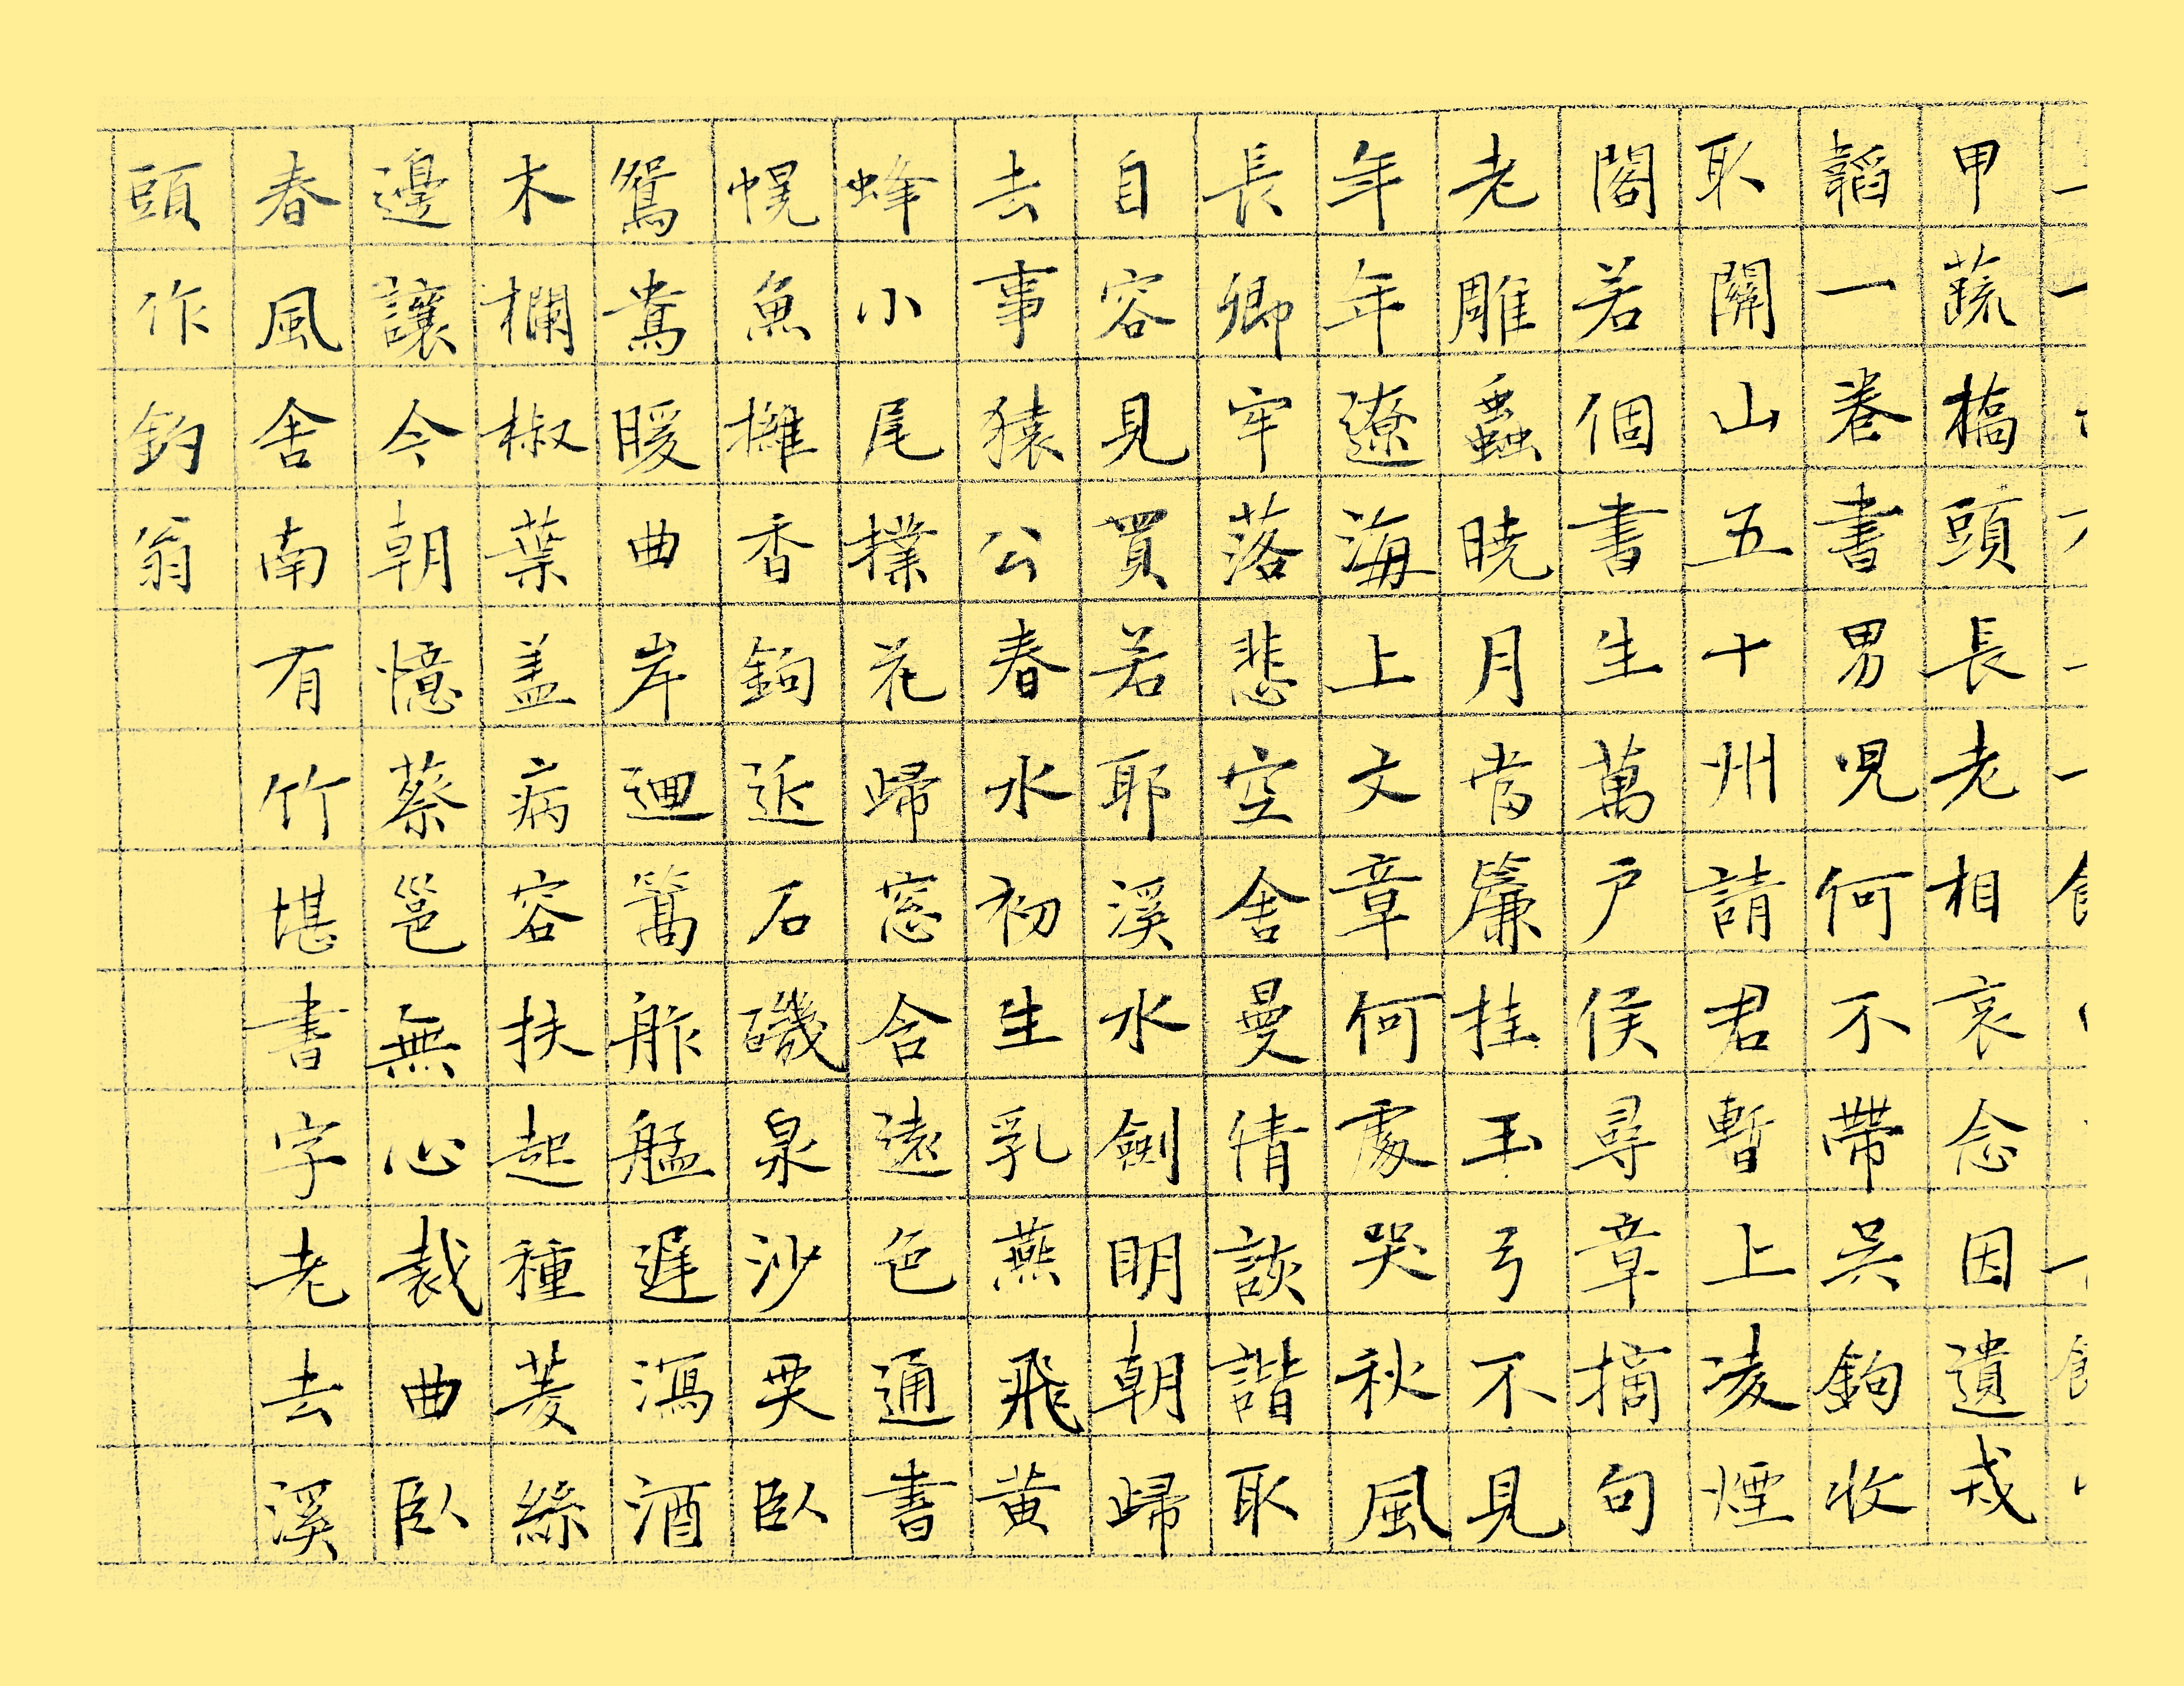 甲蔬橋頭長老相哀念因遺戎
韜一卷書男兒何不帶吳鉤收
取關山五十州請君暫上凌煙
閣若個書生萬戶侯尋章摘句
老雕蟲曉月當簾挂玉弓不見
年年遼海上文章何處哭秋風
長卿牢落悲空舍曼倩詼諧取
自容見買若耶溪水劍明朝歸
去事猿公春水初生乳燕飛黃
蜂小尾撲花歸窓含遠色通書
幌魚擁香鉤近石磯泉沙耎臥
鴛鴦暖曲岸迴篙舴艋遲瀉酒
木欄椒葉蓋病容扶起種菱絲
邊讓今朝憶蔡邕無心裁曲臥
春風舍南有竹堪書字老去溪
頭作釣翁